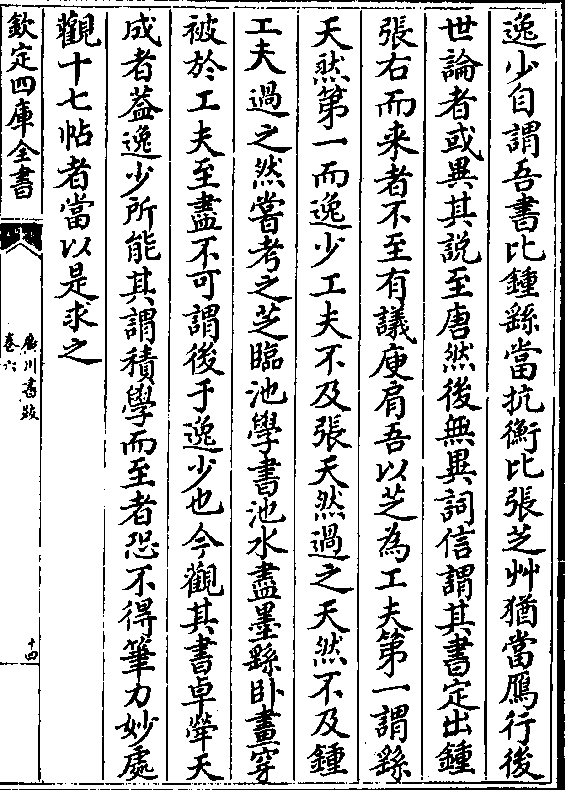 逸少自謂吾書比鍾繇當抗衡比張芝艸猶當鴈行後
世論者或異其説至唐然後無異詞信謂其書定出鍾
張右而来者不至有議庾肩吾以芝為工夫第一謂繇
天然第一而逸少工夫不及張天然過之天然不及鍾
工夫過之然嘗考之芝臨池學書池水盡墨繇卧畫穿
被於工夫至盡不可謂後于逸少也今觀其書卓犖天
成者葢逸少所能其謂積學而至者恐不得筆力妙處
觀十七帖者當以是求之
欽定四庫全書
廣川書跋
卷六
十四